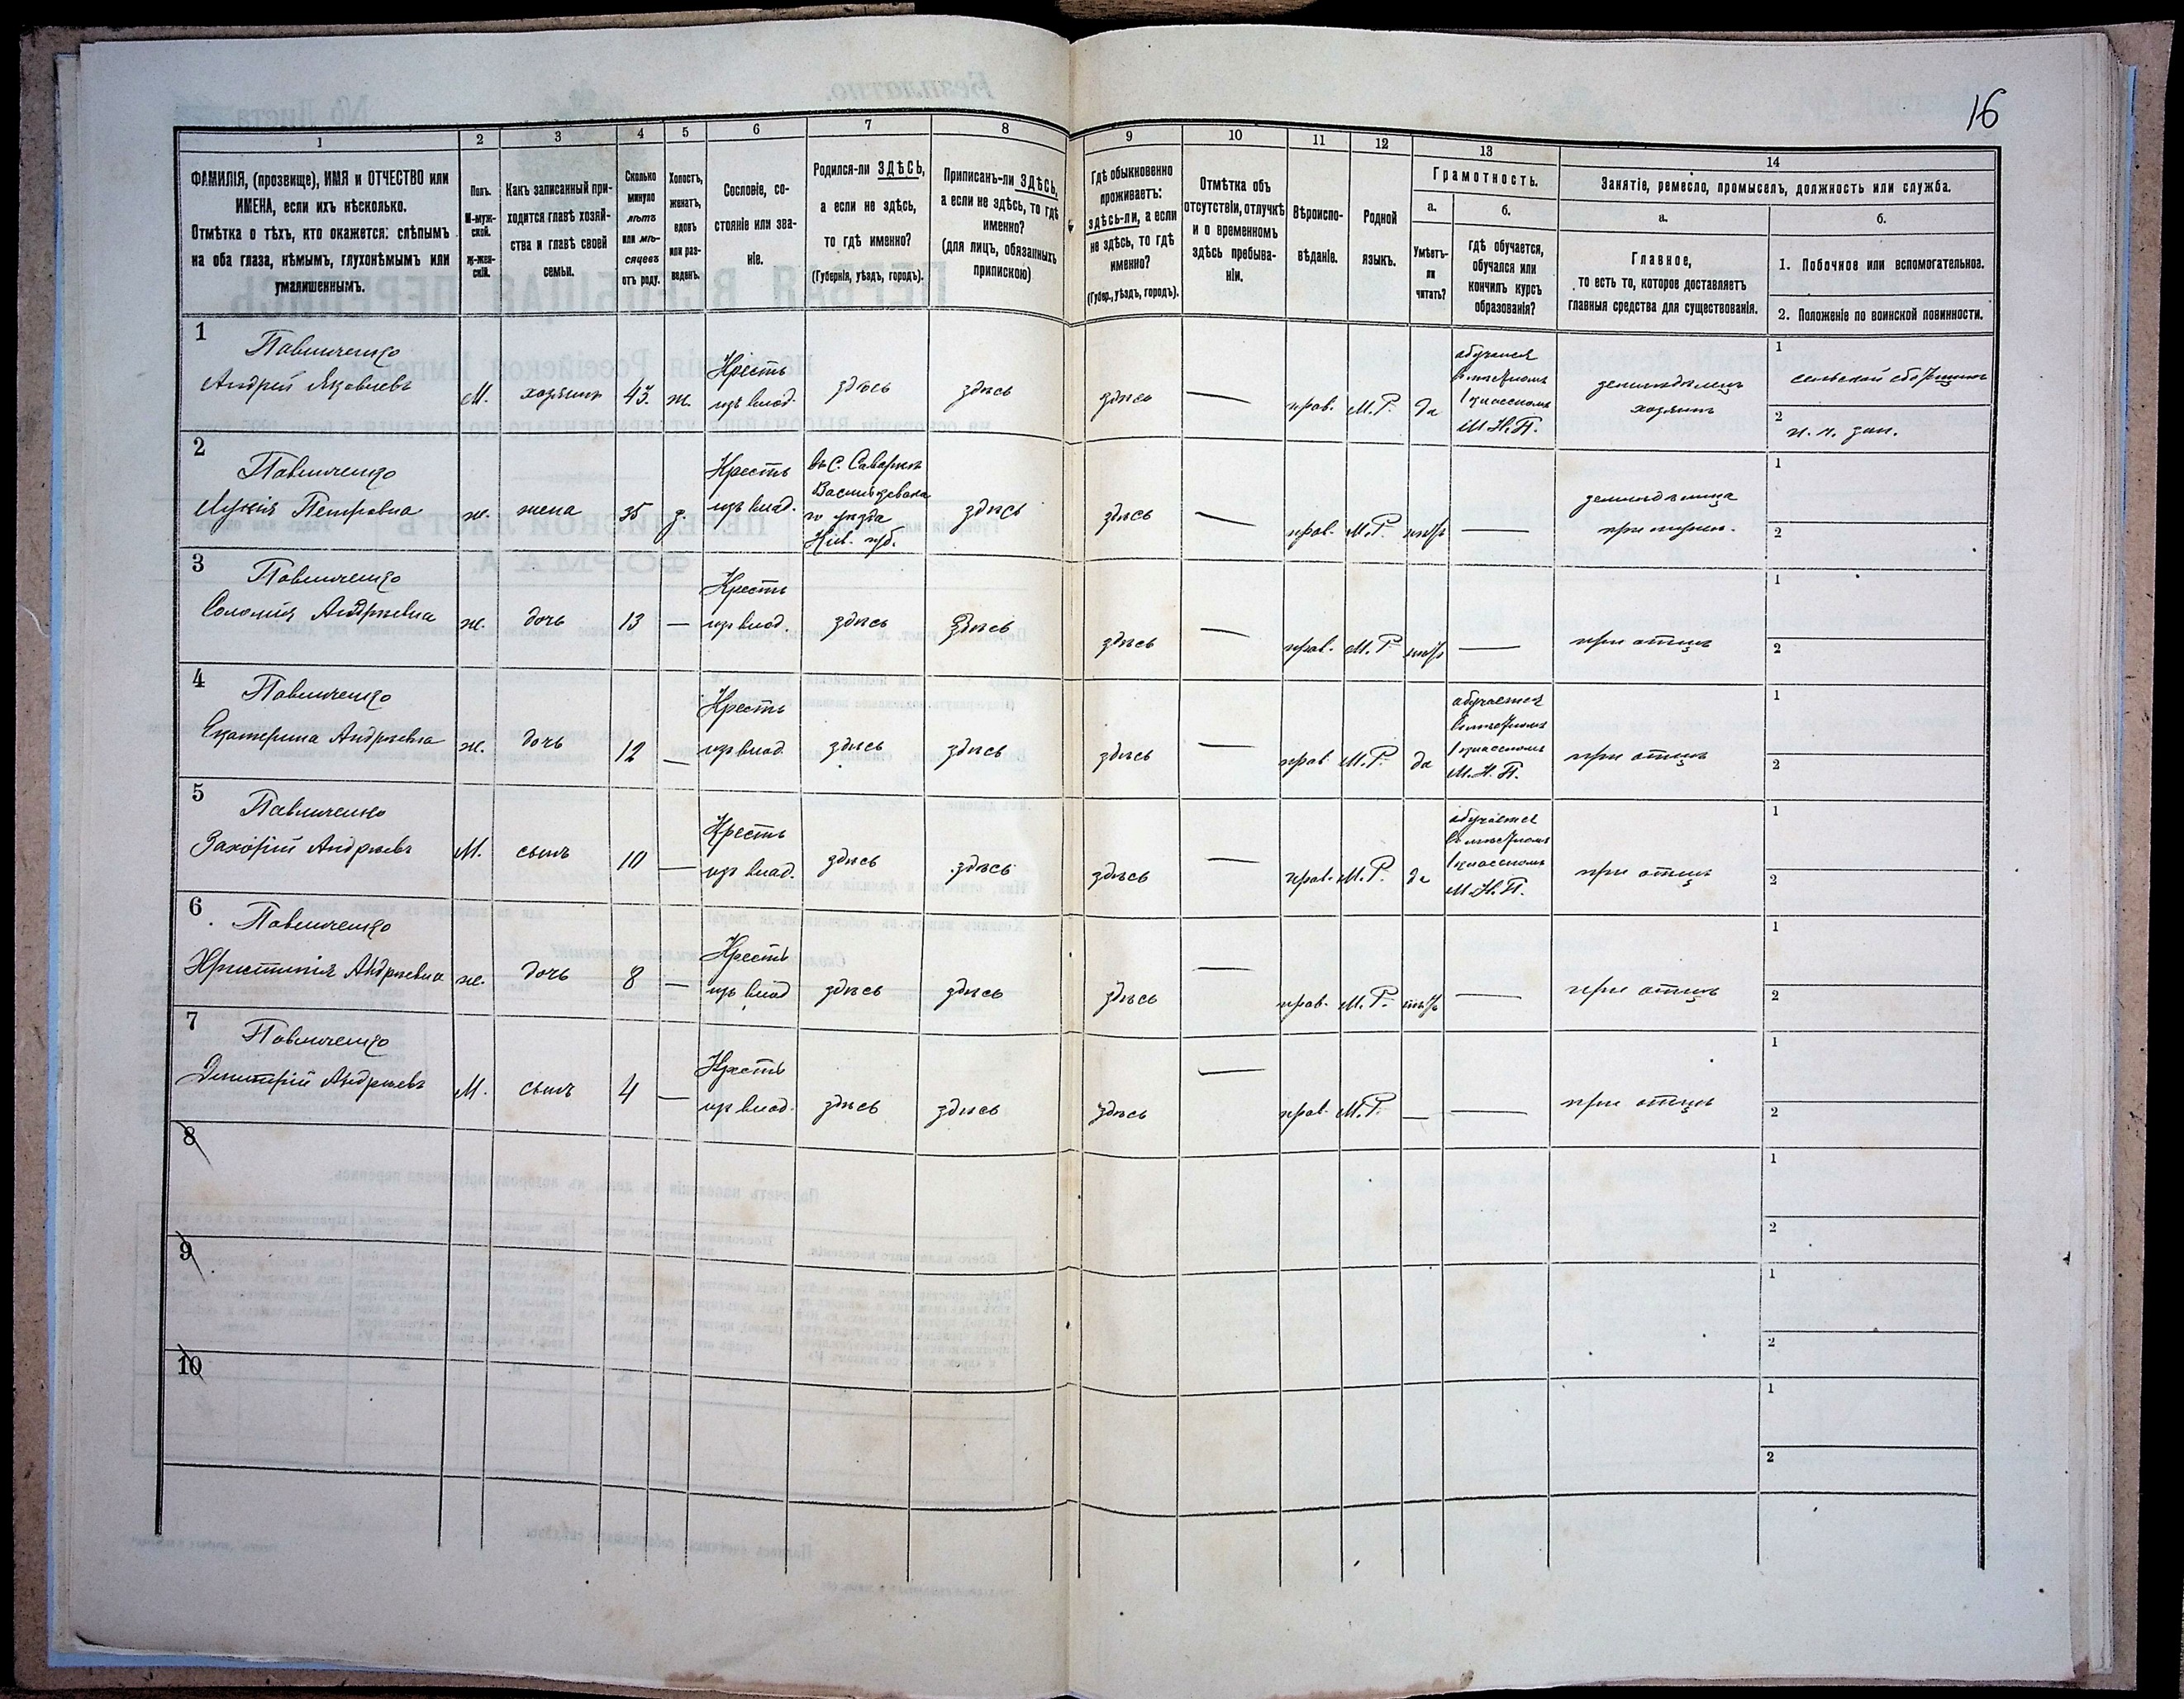 16
1
2
3
4
5
6
7
8
9
10
11
12
13
14
ФАМИЛІЯ, (прозвище), ИМЯ и ОТЧЕСТВО или
ИМЕНА, если ихъ нѣсколько.
Отмѣтка о тѣхъ, кто окажется: слѣпымъ
на оба глаза, нѣмымъ, глухонѣмымъ или
умалишеннымъ.
Полъ.
М-муж-
ской.
Ж-жен-
скій.
Какъ записанный при-
ходится главѣ хозяй-
ства и главѣ своей
семьи.
Сколько
минуло
лѣтъ
или мѣ-
сяцевъ
отъ роду.
Холостъ,
женатъ,
вдовъ
или раз-
веденъ.
Сословіе, со-
стояніе или зва-
ніе.
Родился-ли ЗДѢСЬ,
а если не здѣсь,
то гдѣ именно?
(Губернія, уѣздъ, городъ).
Приписанъ-ли ЗДѢСЬ,
а если не здѣсь, то гдѣ
именно?
(для лицъ, обязанныхъ
припискою)
Гдѣ обыкновенно
проживаетъ:
здѣсь-ли, а если
не здѣсь, то гдѣ
именно?
(Губер., уѣздъ, городъ).
Отмѣтка объ
отсутствіи, отлучкѣ
и о временномъ
здѣсь пребыва-
ніи.
Вѣроиспо-
вѣданіе.
Родной
языкъ.
Грамотность.
а.
б.
Умѣетъ-
ли
читать?
гдѣ обучается,
обучался или
кончилъ курсъ
образованія?
Занятіе, ремесло, промыселъ, должность или служба.
а.
б.
Главное,
то есть то, которое доставляетъ
главныя средства для существованія.
1. Побочное или вспомогательное.
2. Положеніе по воинской повинности.
1
Павличенко
Андрей Яковлевъ
М.
хозяинъ
43.
ж.
Крестъ
изъ влад.
здѣсь
здѣсь
здѣсь
—
прав.
М.Р.
да
обучался
въ мѣстномъ
1 классномъ
М.Н.П.
земледѣлецъ
хозяинъ
1
сельскій сборщикъ
2
н. п. зап.
2
Павличенко
Лукія Петровна
ж.
жена
35
з.
Крестъ
изъ влад.
въ С. Саваркѣ
Васильковска
го уѣзда
Кіев. губ.
здѣсь
здѣсь
—
прав.
М.Р.
нѣтъ
—
земледѣлица
при мужѣ.
1
2
3
Павличенко
Соломія Андрѣевна
ж.
дочь
13
—
Крестъ
изъ влад.
здѣсь
Здѣсь
здѣсь
—
прав.
М.Р.
нѣтъ
—
при отцѣ
1
2
4
Павличенко
Екатерина Андрѣевна
ж.
дочь
12
—
Крестъ
изъ влад.
здѣсь
здѣсь
здѣсь
—
прав.
М.Р.
да
обучается
въ мѣстномъ
1 классномъ
М.Н.П.
при отцѣ
1
2
5
Павличенко
Захарій Андрѣевъ
М.
сынъ
10
—
Крестъ
изъ влад.
здѣсь
здѣсь
здѣсь
—
прав.
М.Р.
да
обучается
въ мѣстномъ
1 классномъ
М.Н.П.
при отцѣ
1
2
6
Павличенко
Христинія Андрѣевна
ж.
дочь
8
—
Крестъ
изъ влад
здѣсь
здѣсь
здѣсь
—
прав.
М.Р.
нѣтъ
—
при отцѣ
1
2
7
Павличенко
Димитрій Андрѣевъ
М.
сынъ
4
—
Крестъ
изъ влад.
здѣсь
здѣсь
здѣсь
—
прав.
М.Р.
—
—
при отцѣ
1
2
8
1
2
9
1
2
10
1
2